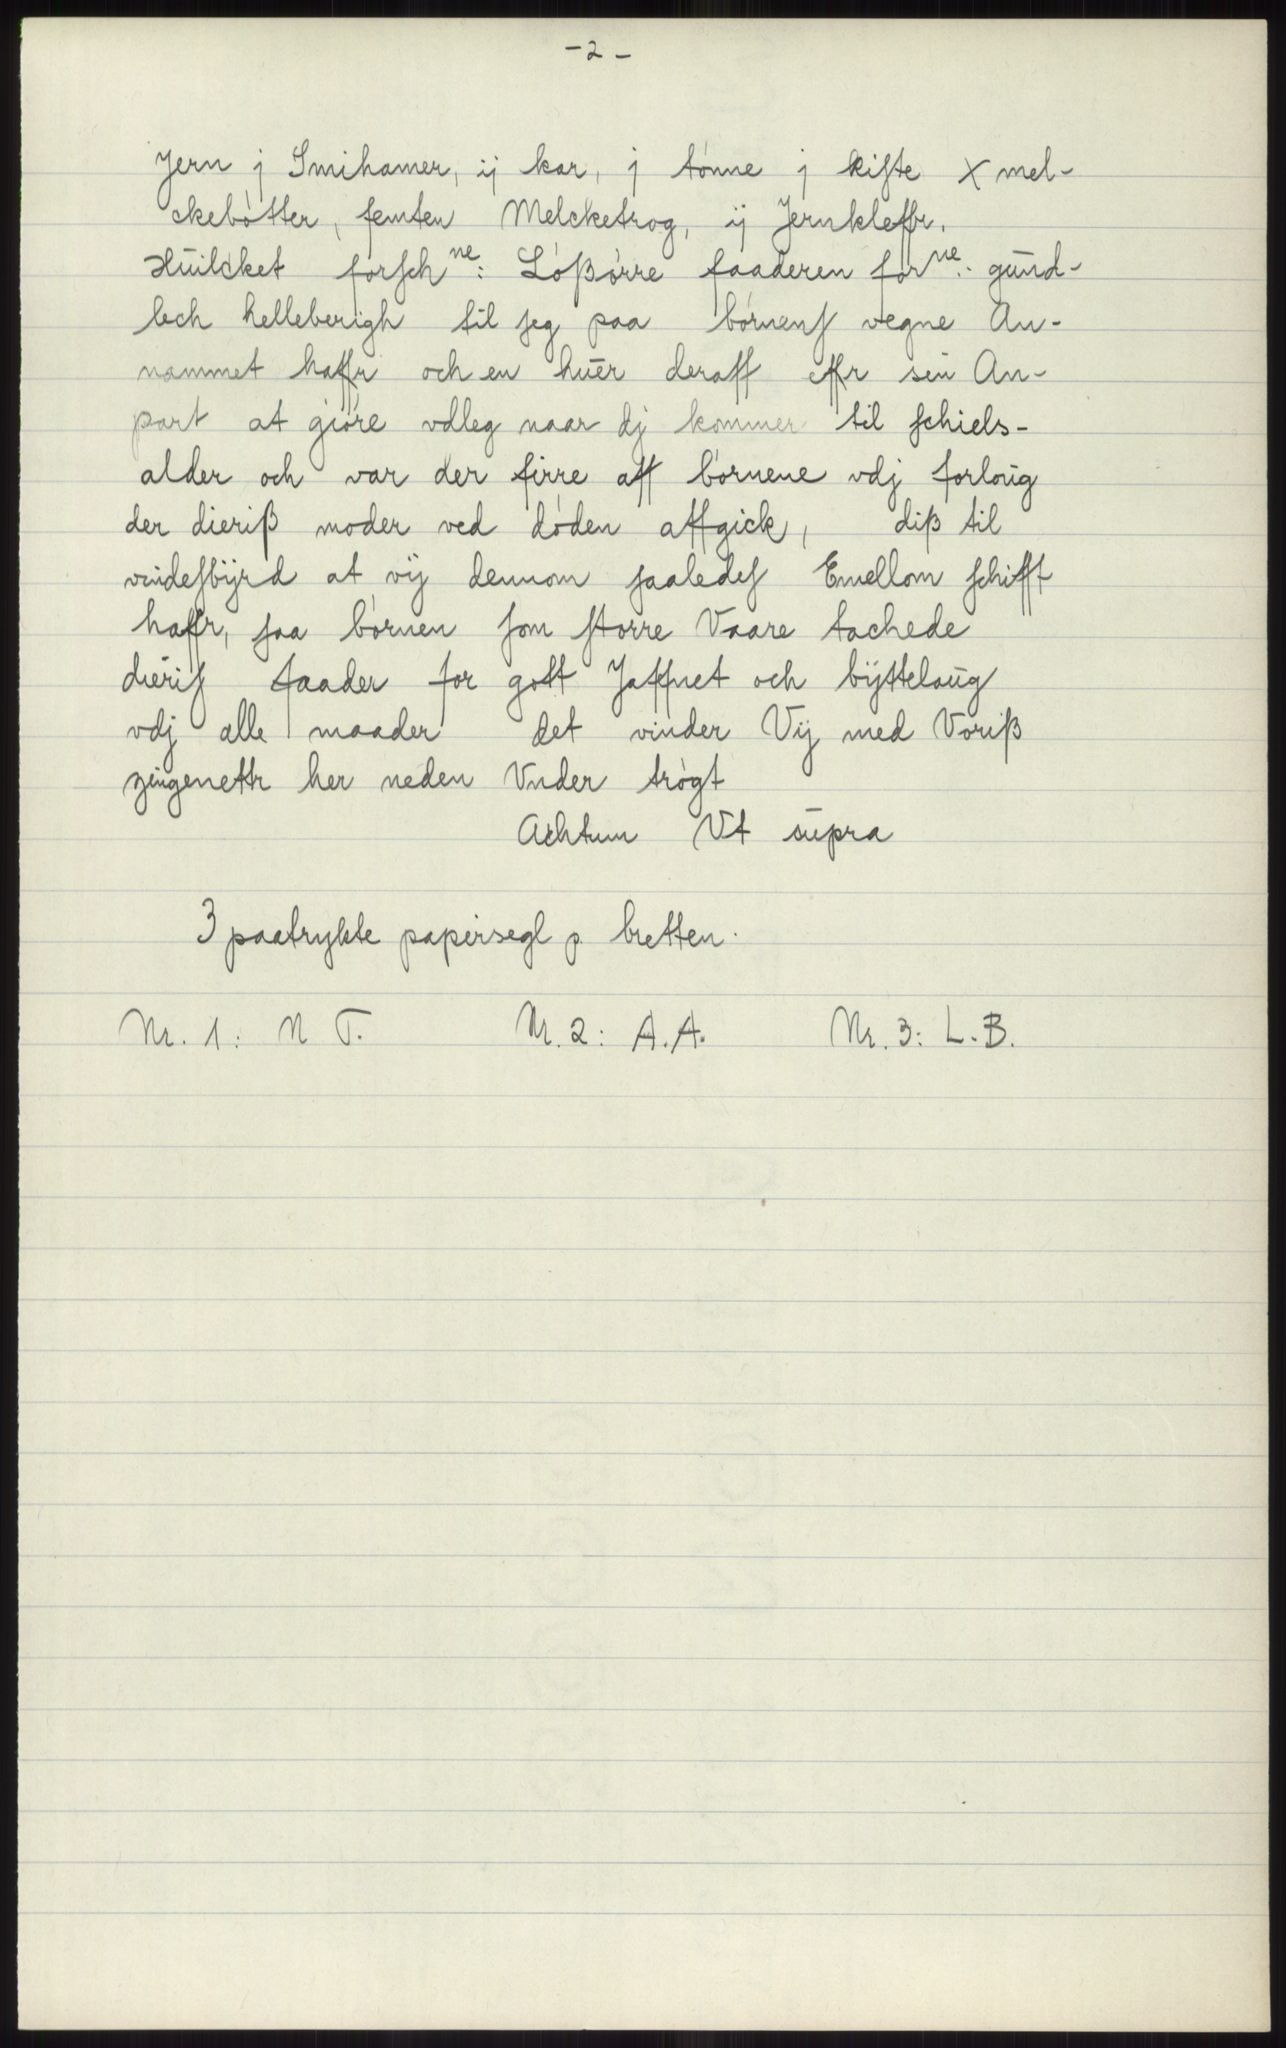 - 2 -
Jern j Smihamer, ij kar, j tónne j kiste x mel-
ckebótter, femten Melcketrog, ij Jernkleffr.
Huilcket forschne: Lóßórre faaderen forne: gund-
lech helleberigh til seg paa bórnens vegne An-
nammet haffr och en huer deraff effr sin An-
part at gióre vdleg naar dj kommer til schiels-
alder och var der firre aff bórnene vdj forloug
der dieriß moder ved dóden affgick, diß til
vindesbÿrd at vij dennom saaledes Emellom schifft
haffr, saa bórnen som storre Vaare tachede
dieris faader for gott Jaffnet och bÿtteloug
vdj alle maader det vinder Vij med Voriß
zingenettr her neden Vnder trógt
Achtum Vt supra
3 paatrykte papirsegl p. bretten.
Nr. 1: N T. Nr. 2: A.A. Nr. 3: L.B.